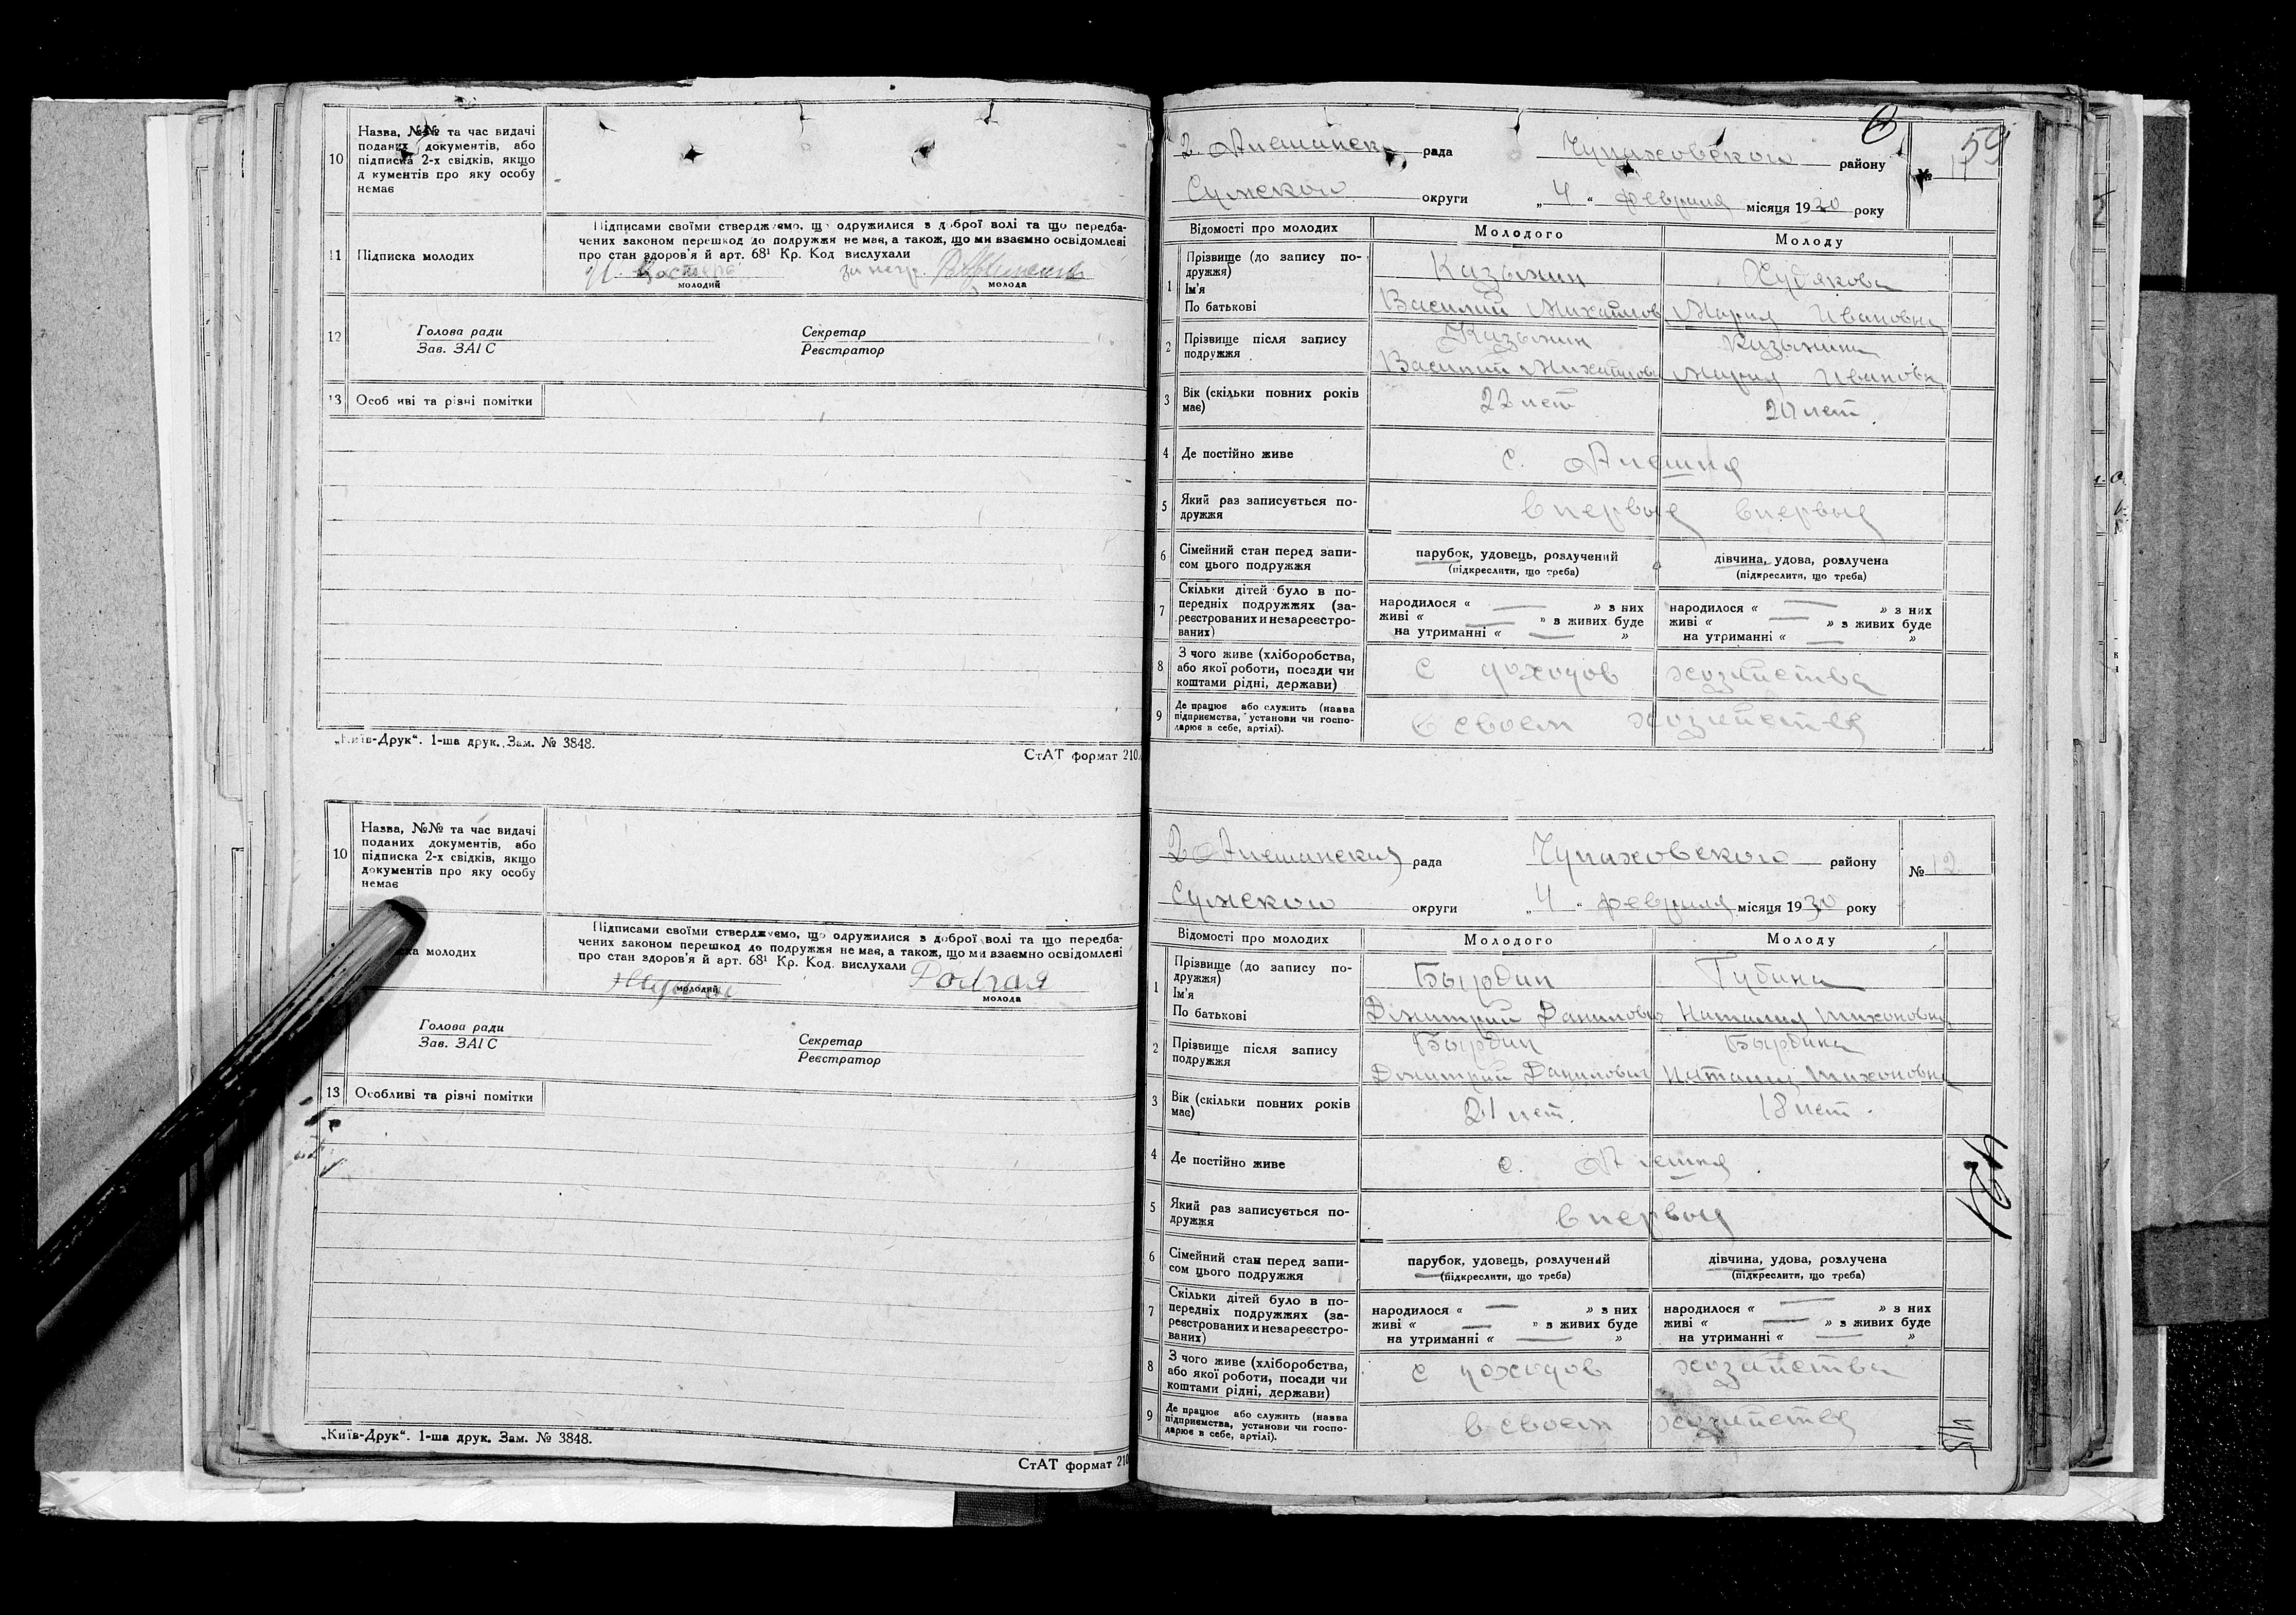 10
Назва, №№ та час видачі
поданих документів, або
підписка 2-х свідків, якщо
д кументів про яку особу
немає
11 Підписка молодих
Підписами своїми стверджуємо, що одружилися з доброї волі та що передба-
чених законом перешкод до подружжя не має, а також, що ми взаємно освідомлені
про стан здоров'я й арт. 68¹ Кр. Код вислухали
молодий
молода
12
Голова ради
Зав. ЗАГС
Секретар
Реєстратор
13 Особ иві та різні помітки
„Київ-Друк“. 1-ша друк. Зам. № 3848.
СтАТ формат 210
10
Назва, №№ та час видачі
поданих документів, або
підписка 2-х свідків, якщо
документів про яку особу
немає
молодих
Підписами своїми стверджуємо, що одружилися з доброї волі та що передба-
чених законом перешкод до подружжя не має, а також, що ми взаємно освідомлені
про стан здоров'я й арт. 68¹ Кр. Код. вислухали
молодий
молода
Голова ради
Зав. ЗАГС
Секретар
Реєстратор
13 Особливі та різні помітки
„Київ-Друк“. 1-ша друк. Зам. № 3848.
СтАТ формат 210
59
рада Чупаховского району №
Сумского округи „4“ февраля місяця 1930 року
Відомості про молодих Молодого Молоду
1 Прізвище (до запису по-
дружжя)
Ім'я
По батькові
Казьмин Худякова
Василий Михайлов Мария Ивановна
2 Прізвище після запису
подружжя
Казьмин Казьмина
Василий Михайлов Мария Ивановна
3 Вік (скільки повних років
має)
22 лет 20 лет
4 Де постійно живе
с. Алешня
5 Який раз записується по-
дружжя
впервые впервые
6 Сімейний стан перед запи-
сом цього подружжя
парубок, удовець, розлучений
(підкреслити, що треба)
дівчина, удова, розлучена
(підкреслити, що треба)
7 Скільки дітей було в по-
передніх подружжях (за-
реєстрованих и незареєстро-
ваних)
народилося « » з них
живі « » з живих буде
на утриманні « »
народилося « » з них
живі « » з живих буде
на утриманні « »
8 З чого живе (хліборобства,
або якої роботи, посади чи
коштами рідні, держави)
с доходов хозяйства
9 Де працює або служить (назва
підприємства, установи чи госпо-
дарює в себе, артілі).
в своем хозяйстве
2 Алешанская рада Чупаховского району № 12
Сумского округи „4“ февраля місяця 1930 року
Відомості про молодих Молодого Молоду
1 Прізвище (до запису по-
дружжя)
Ім'я
По батькові
Бырдин Губина
Дмитрий Данилович Наталия Тихоновна
2 Прізвище після запису
подружжя
Бырдин Бырдина
Дмитрий Данилович Наталия Тихоновна
3 Вік (скільки повних років
має)
21 лет. 18 лет.
4 Де постійно живе
с. Алешня
5 Який раз записується по-
дружжя
впервые
6 Сімейний стан перед запи-
сом цього подружжя
парубок, удовець, розлучений
(підкреслити, що треба)
дівчина, удова, розлучена
(підкреслити, що треба)
7 Скільки дітей було в по-
передніх подружжях (за-
реєстрованих и незареєстро-
ваних)
народилося « » з них
живі « » з живих буде
на утриманні « »
народилося « » з них
живі « » з живих буде
на утриманні « »
8 З чого живе (хліборобства,
або якої роботи, посади чи
коштами рідні, держави)
с доходов хозяйства
9 Де працює або служить (назва
підприємства, установи чи госпо-
дарює в себе, артілі).
в своем хозяйстве